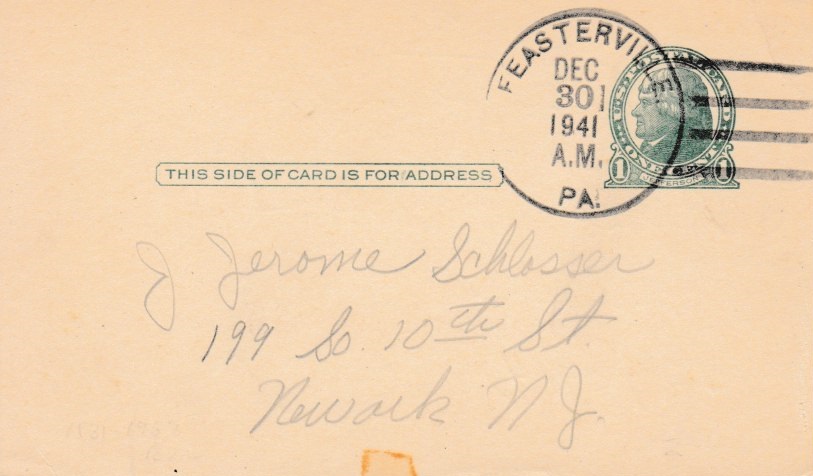 FEASTERVILLE
DEC
30
1941
A.M.
PA.
U.S. POSTAL CARD
ONE CENT
1 JEFFERSON 1
THIS SIDE OF CARD IS FOR ADDRESS
J Jerome Schlosser
199 So. 10th St.
Newark N J.